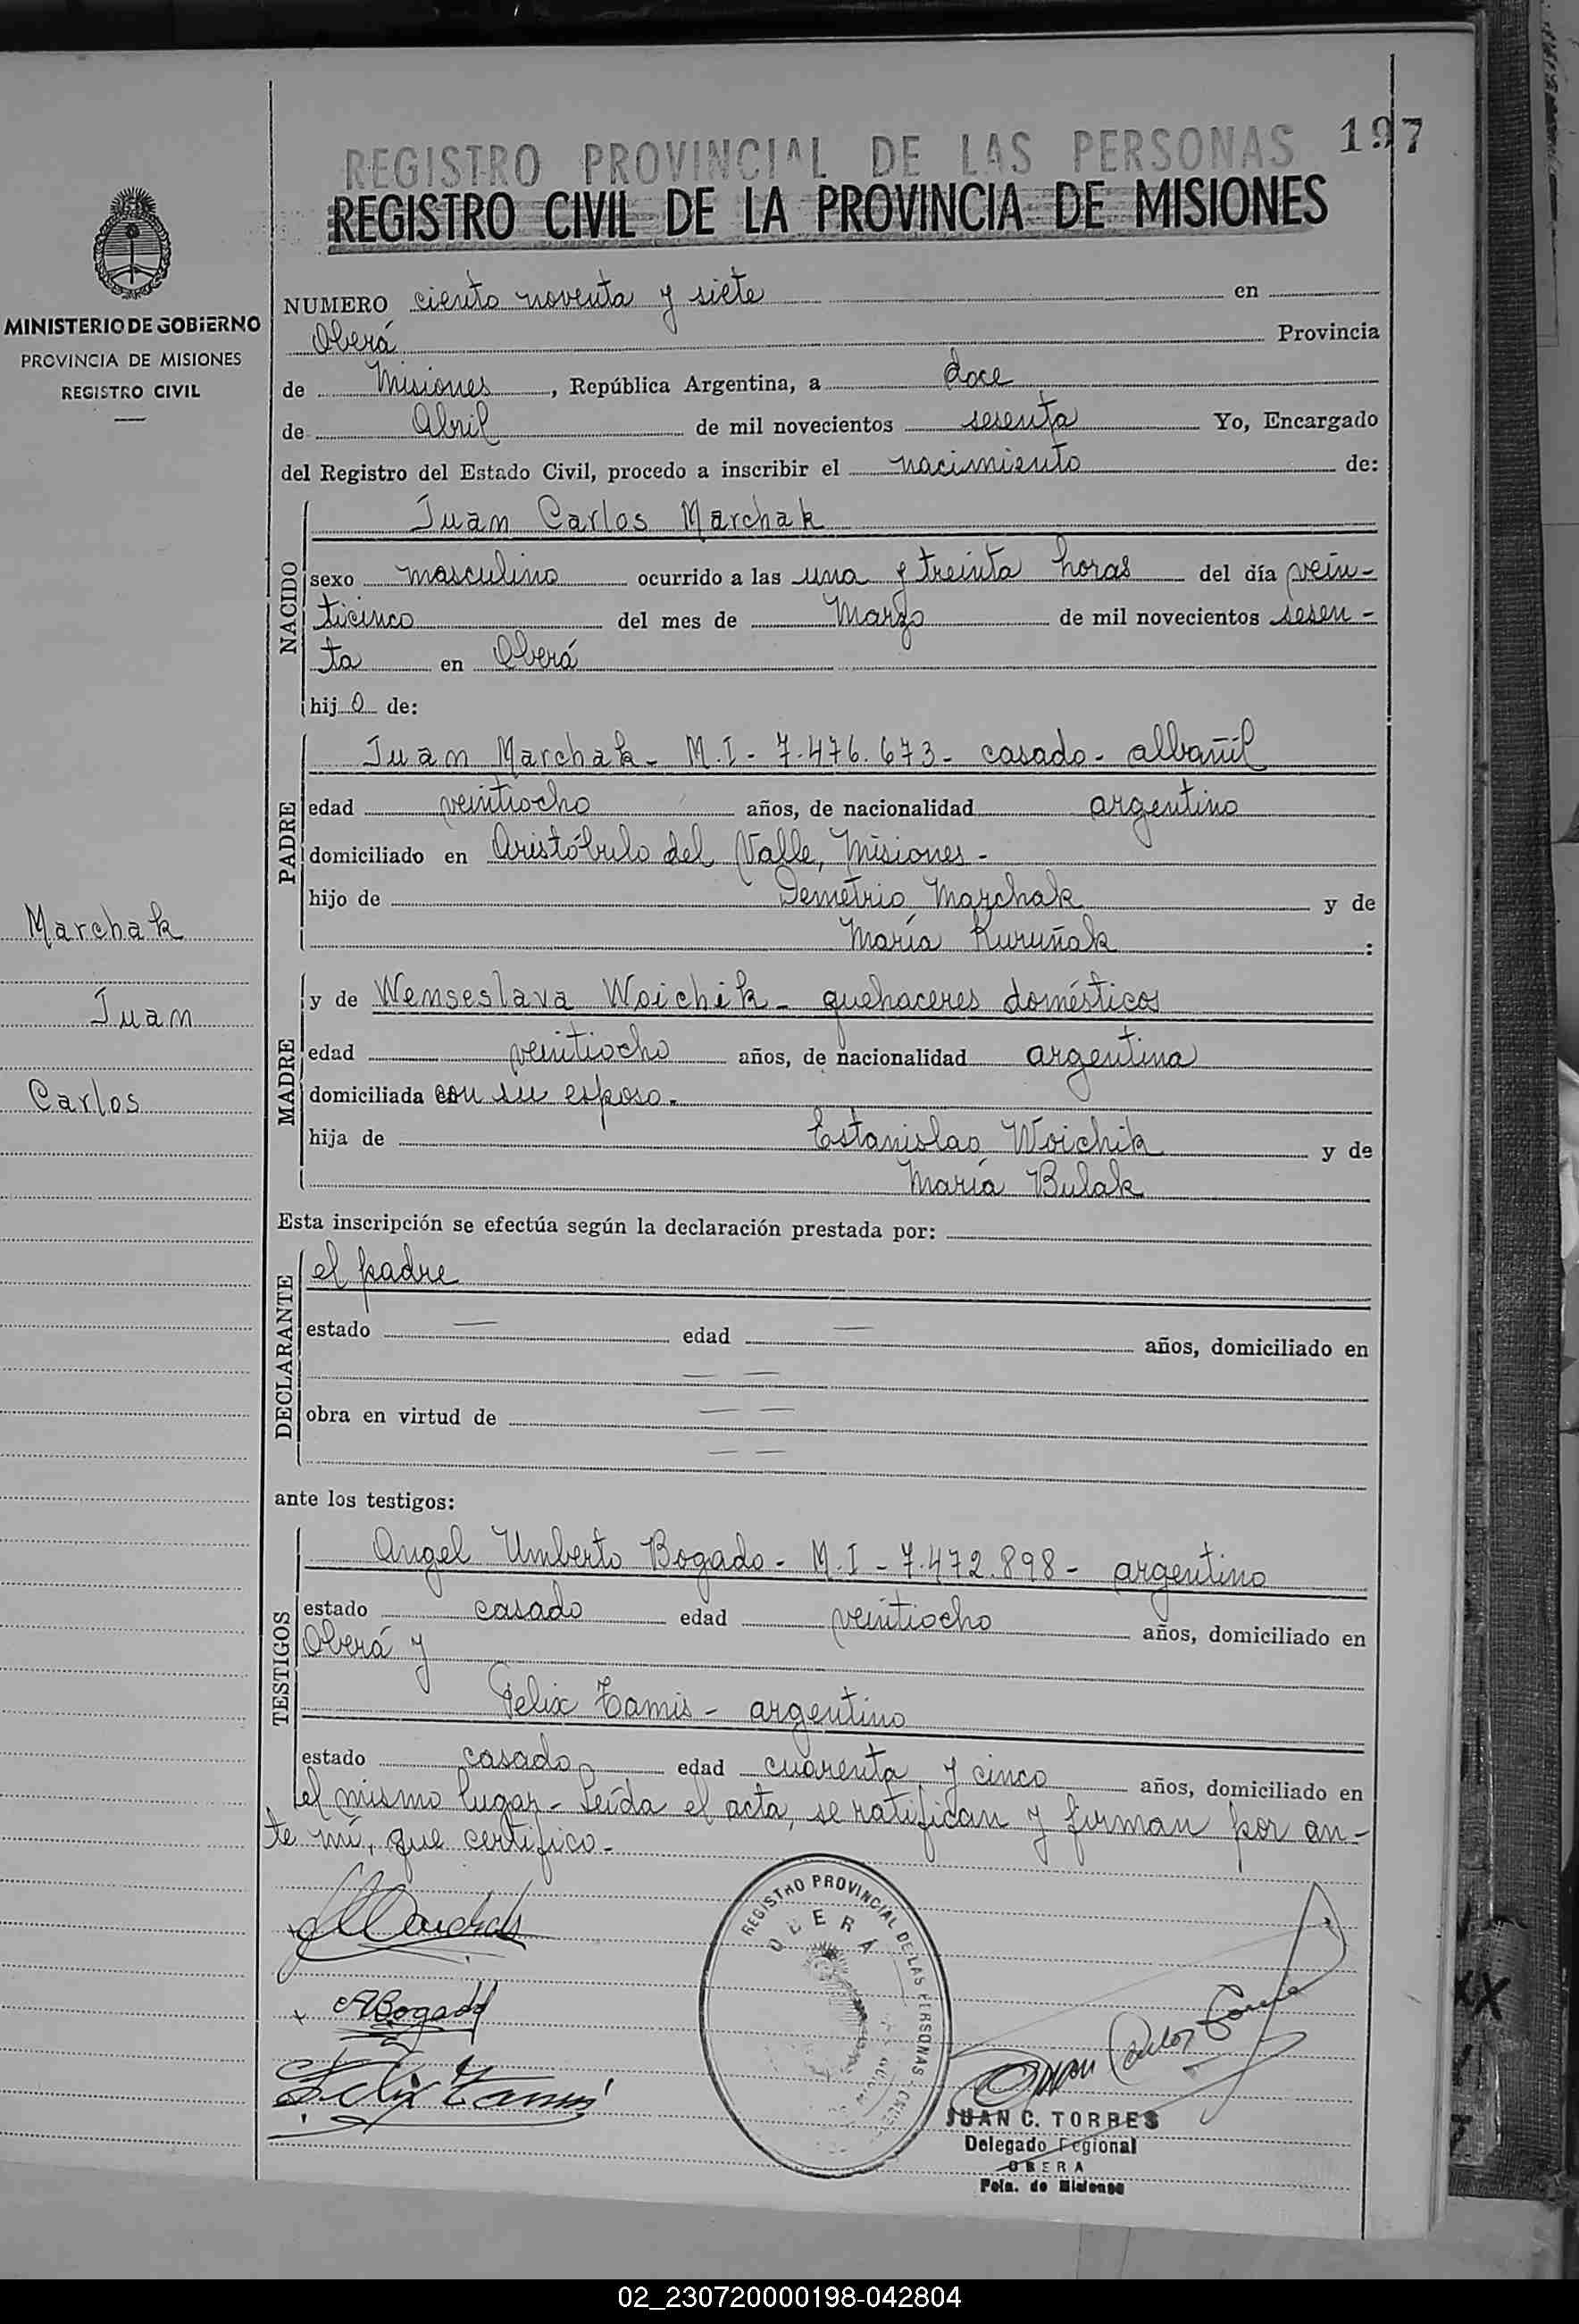 197
REGISTRO PROVINCIAL DE LAS PERSONAS
REGISTRO CIVIL DE LA PROVINCIA DE MISIONES
MINISTERIO DE GOBIERNO
PROVINCIA DE MISIONES
REGISTRO CIVIL
NUMERO ciento noventa y siete en
Oberá Provincia
de Misiones, República Argentina, a doce
de Abril de mil novecientos sesenta Yo, Encargado
del Registro del Estado Civil, procedo a inscribir el nacimiento de:
NACIDO
Juan Carlos Marchak
sexo masculino ocurrido a las una y treinta horas del día vein-
ticinco del mes de Marzo de mil novecientos sesen-
ta en Oberá
hijo de:
PADRE
Juan Marchak - M.I - 7.476.673 - casado - albañil
edad veintiocho años, de nacionalidad argentino
domiciliado en Aristóbulo del Valle, Misiones -
hijo de Demetrio Marchak y de
María Kuruñak :
Marchak
Juan
Carlos
MADRE
y de Wenseslava Woichik - quehaceres domésticos
edad veintiocho años, de nacionalidad argentina
domiciliada con su esposo.
hija de Estanislao Woichik y de
María Bulak
Esta inscripción se efectúa según la declaración prestada por:
DECLARANTE
el padre
estado — edad — años, domiciliado en
— —
obra en virtud de — —
— —
ante los testigos:
TESTIGOS
Angel Umberto Bogado - M.I - 7.472.898 - argentino
estado casado edad veintiocho años, domiciliado en
Oberá y
Felix Tamis - argentino
estado casado edad cuarenta y cinco años, domiciliado en
el mismo lugar - Leída el acta, se ratifican y firman por an-
te mí, que certifico -
REGISTRO PROVINCIAL DE LAS PERSONAS
OBERÁ
ABogado
Felix Tamis
JUAN C. TORRES
Delegado Regional
OBERA
Pcia. de Misiones
02_230720000198-042804